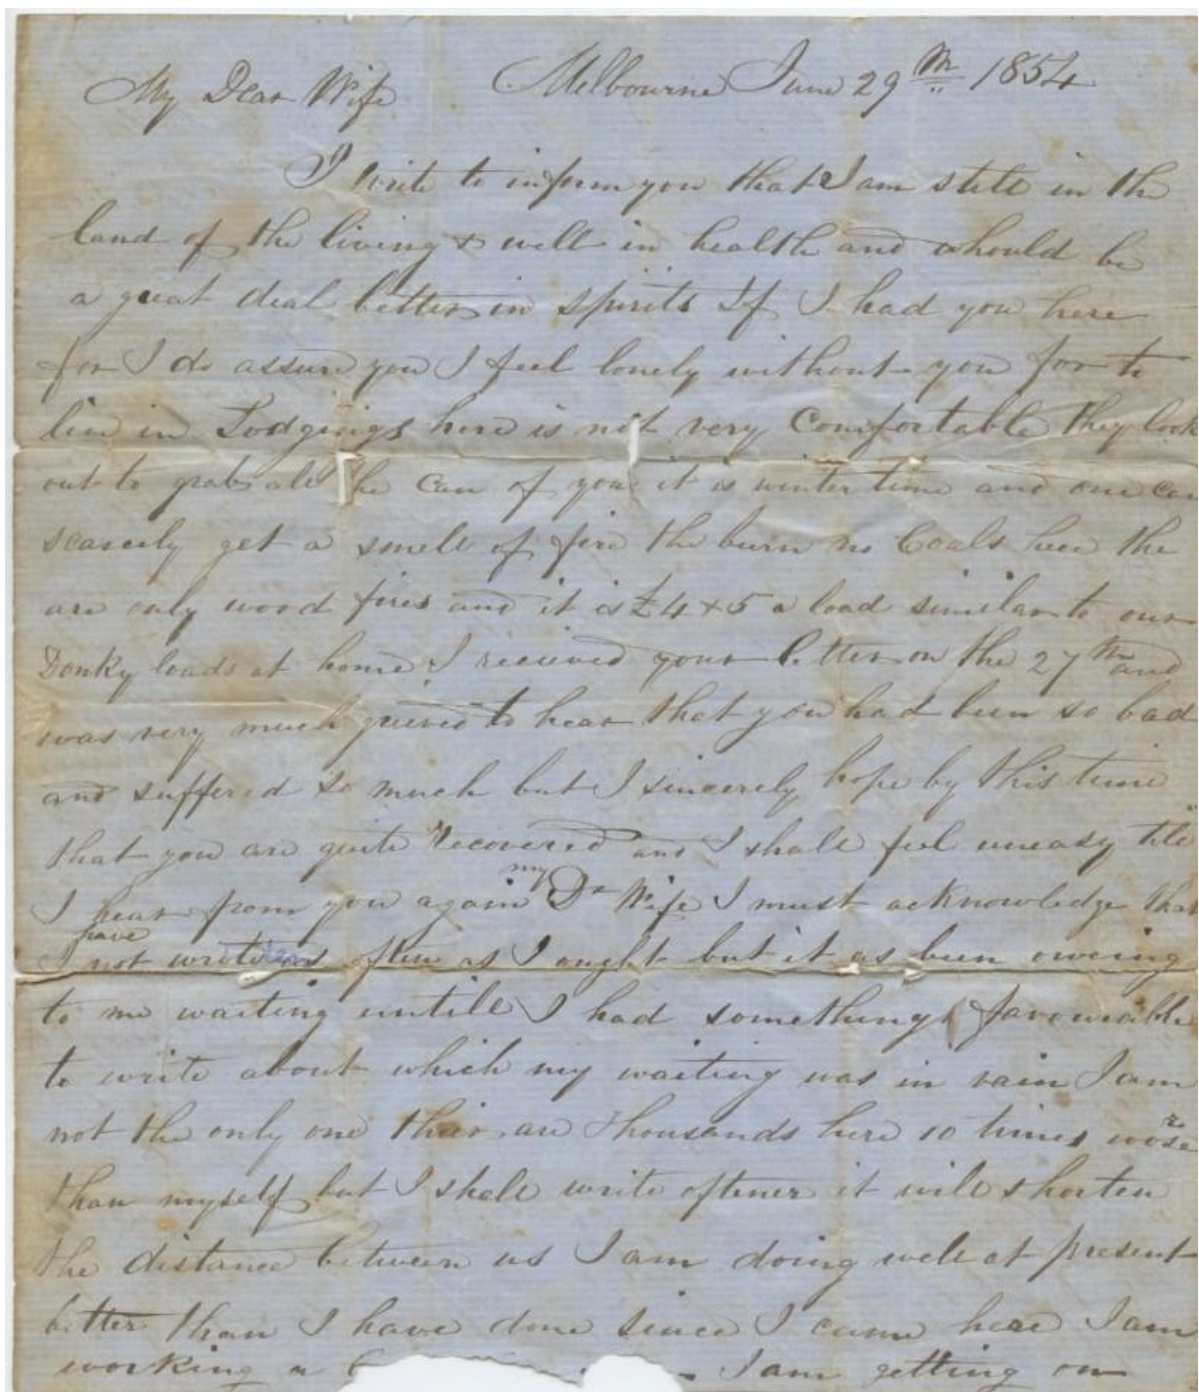 Melbourne June 29th 1854
My Dear Wife
I write to inform you that I am still in the
land of the living & well in health and whould be
a great deal better in spirits If I had you here
for I do assure you I feel lonely without you for to
live in Lodgings here is not very Comfortable they look
out to grab all the can of you it is winter time and one can
scarcely get a smell of fire the burn no Coals here the
are only wood fires and it is £4 & 5 a load similar to our
Donky loads at home I recieved your letter on the 27th and
was very much grieved to hear that you had been so bad
and suffered so much but I sincerely hope by this time
that you are quite recovered and I shall feel uneasy till
I hear from you again my Dr Wife I must acknowledge that
I have not wrote as often as I ought but it as been owing
to me waiting untill I had something favourable
to write about which my waiting was in vain I am
not the only one thier are thousands here 10 times worse
than myself but I shall write oftener it will shorten
the distance between us I am doing well at present
better than I have done since I came here I am
working a I am getting on